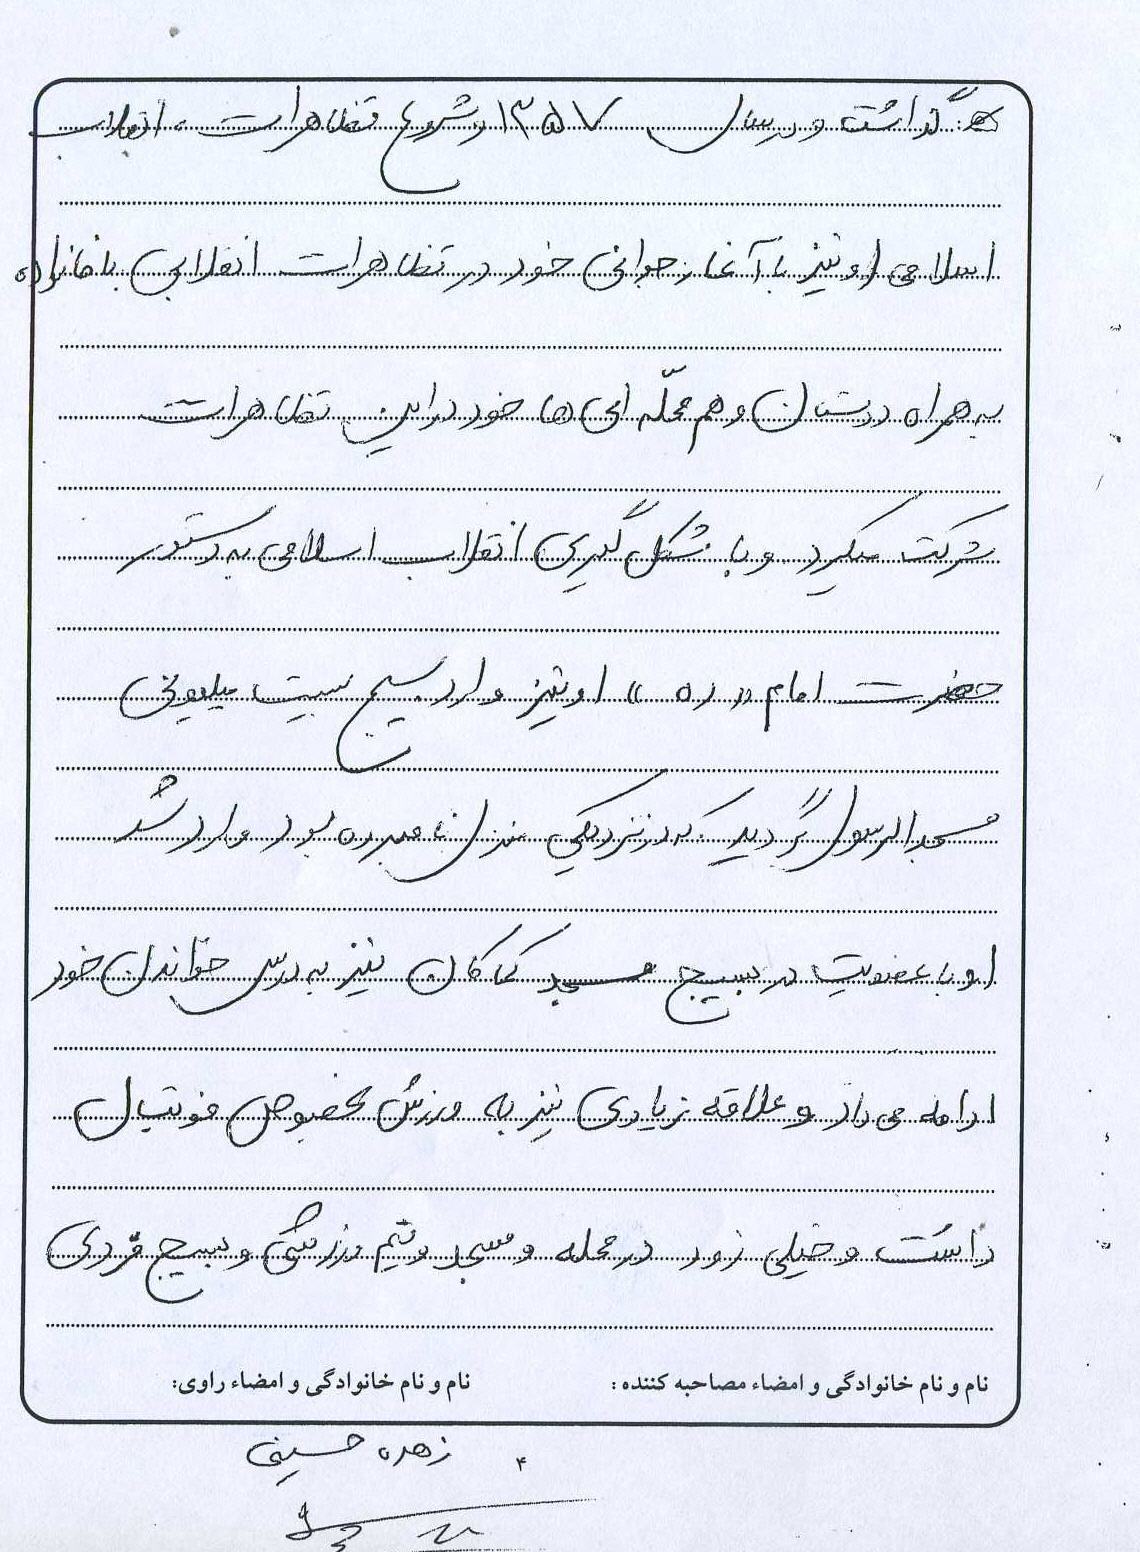 گذاشت و در سال ۱۳۵۷ و شروع تظاهرات انقلاب
اسلامی او نیز با آغاز جوانی خود در تظاهرات انقلابی با خانواده
به همراه دوستان و هم محلّه ای ها خود در این تظاهرات
شرکت میکرد و با شکل گیری انقلاب اسلامی به دستور
حضرت امام «ره» او نیز وارد بسیج بیست میلیونی
مسجد الرسول گردید که در نزدیکی منزل نامبرده بود وارد شد
او با عضویت در بسیج مسجد کماکان نیز به درس خواندن خود
ادامه می داد و علاقه زیادی نیز به ورزش بخصوص فوتبال
داشت و خیلی زود در محله و مسجد و تیم ورزشی و بسیج فردی
نام و نام خانوادگی و امضاء مصاحبه کننده : نام و نام خانوادگی و امضاء راوی:
۴ زهره حسینی